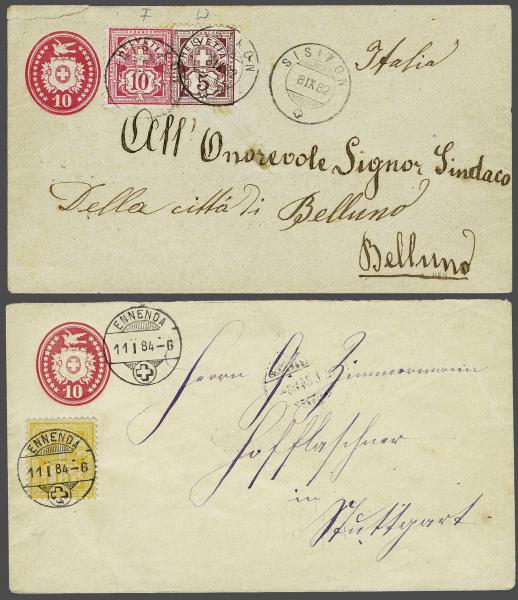 F W
10
HELVETIA HELVETIA
10 5
SISIKON
8 IX 82
Italia
All' Onorevole Signor Sindaco
Della città di Belluno
Belluno
10
ENNENDA
11 I 84-6
Herrn Zimmermann
Hofflaschner
in
Stuttgart
ENNENDA
11 I 84-6
15